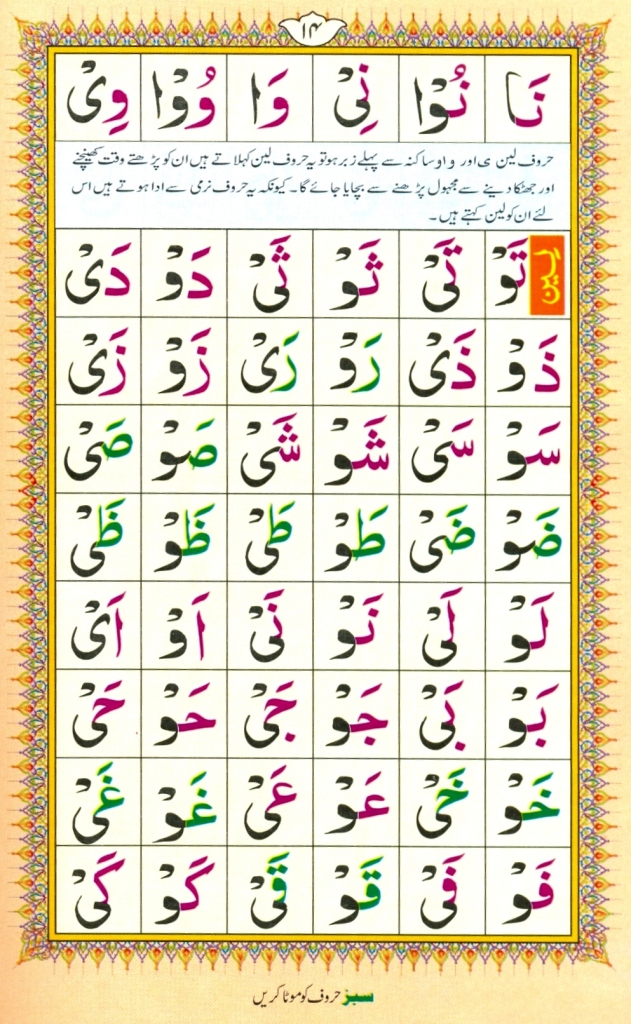 ۱۴
نَا نُوْا نِیْ وَا وُوْا وِیْ
حروف لین ی اور و او ساکنہ سے پہلے زبر ہو تو یہ حروف لین کہلاتے ہیں ان کو پڑھتے وقت کھینچنے
اور جھٹکا دینے سے مجہول پڑھنے سے بچایا جائے گا۔ کیونکہ یہ حروف نرمی سے ادا ہوتے ہیں اس
لئے ان کو لین کہتے ہیں۔
لین تَوْ تَیْ ثَوْ ثَیْ دَوْ دَیْ
ذَوْ ذَیْ رَوْ رَیْ زَوْ زَیْ
سَوْ سَیْ شَوْ شَیْ صَوْ صَیْ
ضَوْ ضَیْ طَوْ طَیْ ظَوْ ظَیْ
لَوْ لَیْ نَوْ نَیْ اَوْ اَیْ
بَوْ بَیْ جَوْ جَیْ حَوْ حَیْ
خَوْ خَیْ عَوْ عَیْ غَوْ غَیْ
فَوْ فَیْ قَوْ قَیْ کَوْ کَیْ
سبز حروف کو موٹا کریں